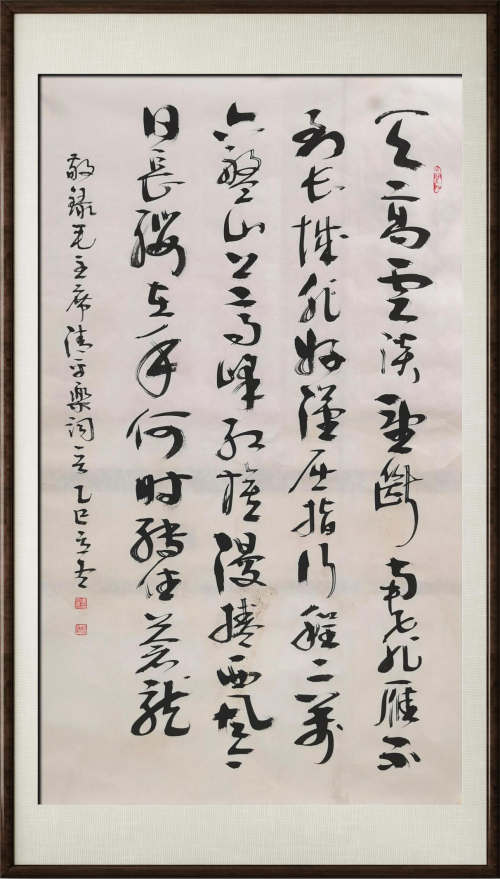 天高雲淡望斷南飛雁不
到长城非好漢屈指行程二萬
六盤山上高峰红旗漫捲西風今
日長缨在手何时缚住蒼龍
敬録毛主席清平樂詞一首乙巳